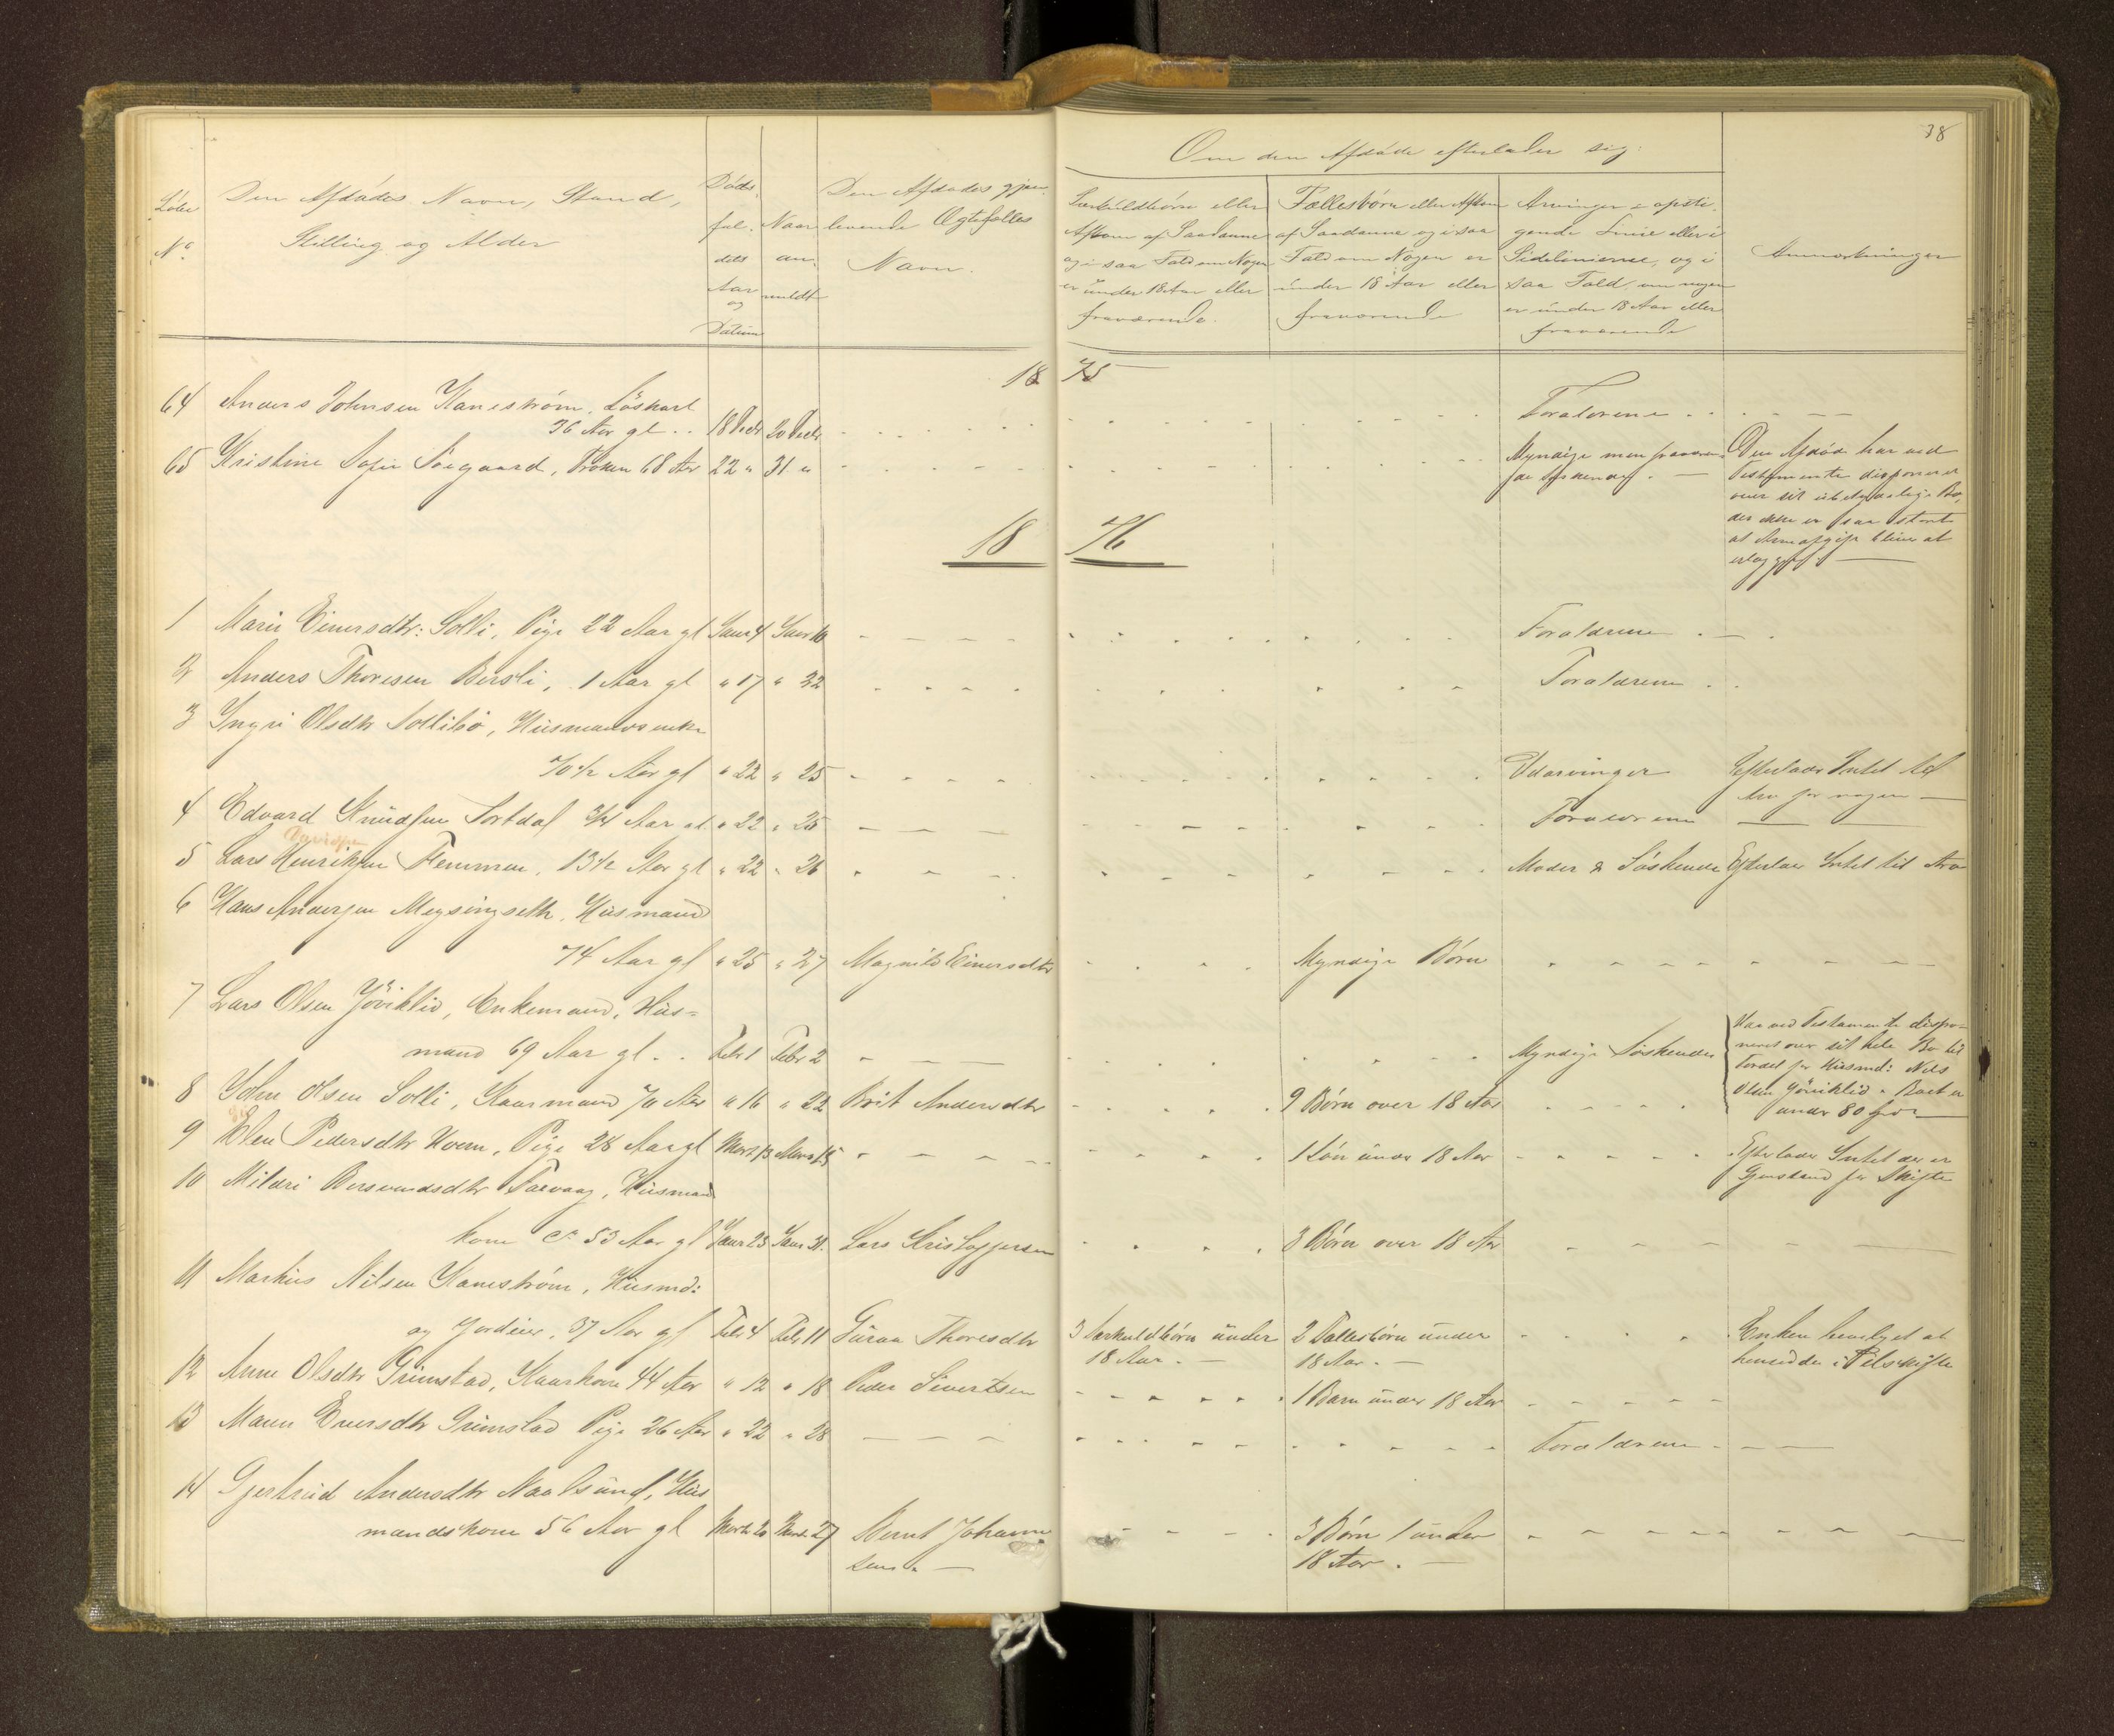 38
Om den Afdøde efterlader sig:
Løbe
No
Den Afdødes Navn, Stand,
Stilling og Alder
Døds-
fal-
dets
Aar
og
Datum
Naar
an-
meldt
Den Afdødes gjen-
levende Ægtefælles
Navn.
Særkuldbørn eller
Afkom af Saadanne
og i saa Fald om Nogen
er under 18 Aar eller
fraværende.
Fællesbørn eller Afkom
af Saadanne og i saa
Fald om Nogen er
under 18 Aar eller
fraværende
Arvinger i opsti-
gende Linie eller i
Sidelinierne, og i
saa Fald om nogen
er under 18 Aar eller
fraværende
Anmærkninger
18 75
64 Anders Johnsen Kanestrøm, Løskarl
36 Aar gl. 18 Decbr 20 Decbr Forældrene
65 Kristine Sofie Søegaard, Frøken 68 Aar 22 " 31 " Myndige men fraværen-
de Søskende. Den Afdøde har ved
Testamente disponeret
over sit ubetydelige Bo,
der ikke er saa stort
at Arveafgift bliver at
erlægge
18 76
1 Marie Einersdtr: Solli, Pige 22 Aar gl Janr 4 Janr 10 Forældrene
2 Anders Thoresen Bersli, 1 Aar gl " 17 " 22 Forældrene
3 Yngri Olsdtr Sollibø, Huusmandsenke
70 1/2 Aar gl " 22 " 25 Udarvinger Efterlader Intet til
Arv for nogen
4 Edvard Knudsen Sortdal 3/4 Aar gl. " 22 " 25 Forældrene
5 Lars Henriksen Flemmen, 13 1/2 Aar gl " 22 " 26 Moder & Søskende Efterlader Intet til Arv
6 Hans Andersen Meysingseth, Husmand
74 Aar gl " 25 " 27 Magnild Einersdtr Myndige Børn
7 Lars Olsen Jøviklid, Enkemand, Hus-
mand 69 Aar gl. Febr 1 Febr 2 Myndige Søskende Har ved Testamente dispo-
neret over sit hele Bo til
Fordel for Husmd: Nils
Olsen Jøviklid. Boet er
under 80 Spd
8 John Olsen Solli, Kaarmand 70 Aar " 16 " 22 Brit Andersdtr 9 Børn over 18 Aar
9 Elen Pedersdtr Hoem, Pige 28 Aar gl Marts 13 Marts 15 1 Søn under 18 Aar Efterlader Intet der er
Gjenstand for Skifte
10 Mildri Bersvendsdtr Farvaag, Husmand
kone ca 53 Aar gl Janr 25 Janr 31. Lars Kristoffersen 3 Børn over 18 Aar
11 Markus Nilsen Kanestrøm, Husmd:
og Jordeier, 37 Aar gl Febr 4 Febr 11 Guroa Thoresdtr 3 Særkuldbørn under
18 Aar. 2 Fællesbørn under
18 Aar. Enken bevilget at
hensidde i Uskiftet
12 Anne Olsdtr Grimstad, Kaarkone 44 Aar " 12 " 18 Peder Sivertsen 1 Barn under 18 Aar
13 Maren Eversdtr Grimstad Pige 26 Aar " 22 " 28 Forældrene
14 Gjertrud Andersdtr Naalsund, Hus
mandskone 56 Aar gl Marts 20 Marts 27 Bernt Johann
sen. 3 Børn 1 under
18 Aar.